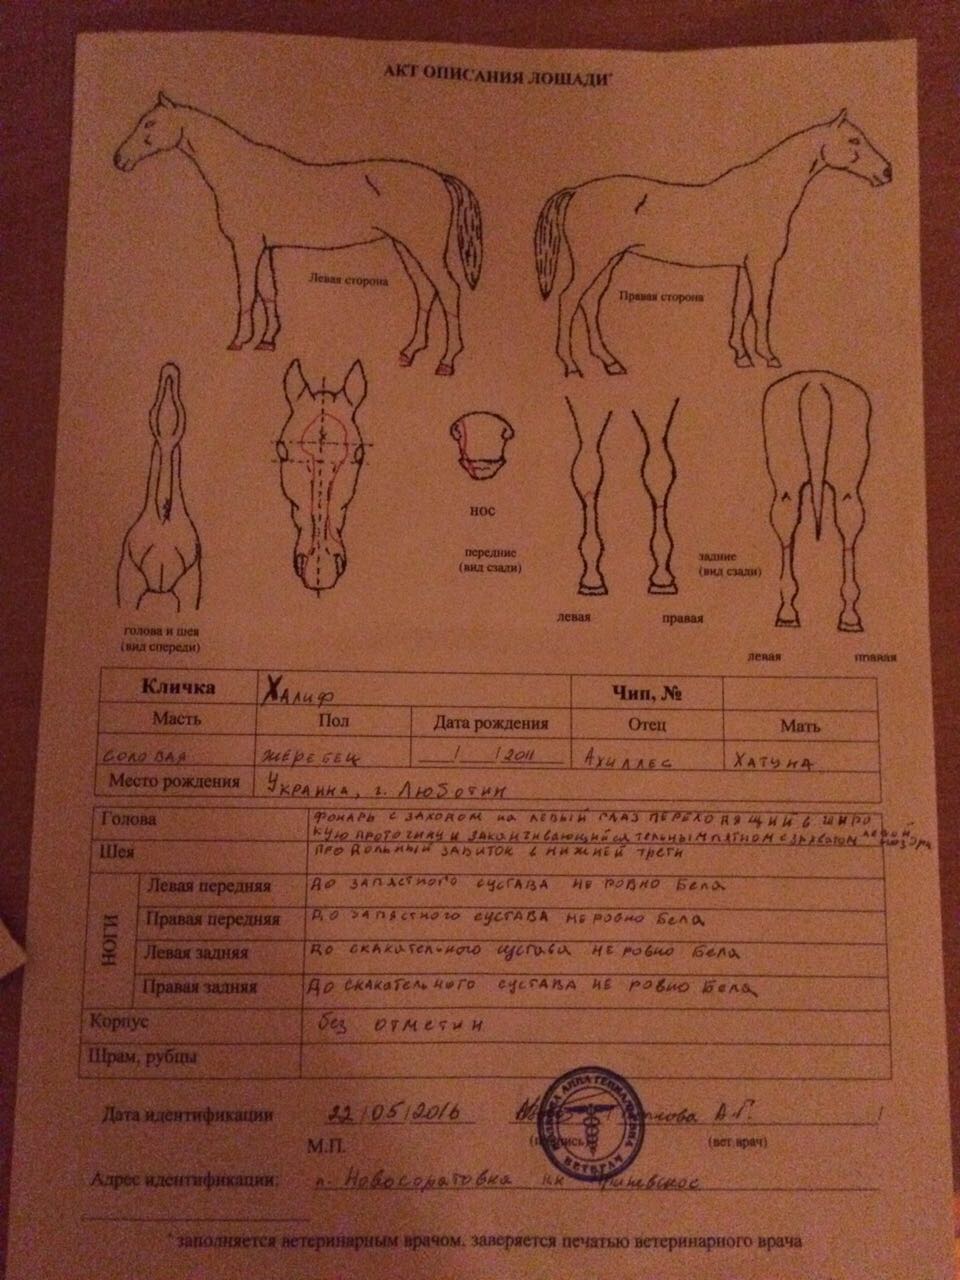 АКТ ОПИСАНИЯ ЛОШАДИ*
Левая сторона
Правая сторона
нос
передние
(вид сзади)
задние
(вид сзади)
левая
правая
голова и шея
(вид спереди)
левая
правая
Кличка Халиф Чип, №
Масть Пол Дата рождения Отец Мать
соловая жеребец / / 2011 Ахиллес Хатуна
Место рождения Украина, г. Люботин
Голова фонарь с заходом на левый глаз переходящий в широ
кую проточину и заканчивающийся тельным пятном с захватом левой ноздри
Шея продольный завиток в нижней трети
НОГИ
Левая передняя До запястного сустава не ровно бела
Правая передняя До запястного сустава не ровно бела
Левая задняя До скакательного сустава не ровно бела
Правая задняя До скакательного сустава не ровно бела
Корпус без отметин
Шрам, рубцы
Дата идентификации 22/05/2016 А.Г.
М.П. (подпись) (вет.врач)
АННА ВЕТВРАЧ
Адрес идентификации: п. Новосоратовка кк
* заполняется ветеринарным врачом, заверяется печатью ветеринарного врача